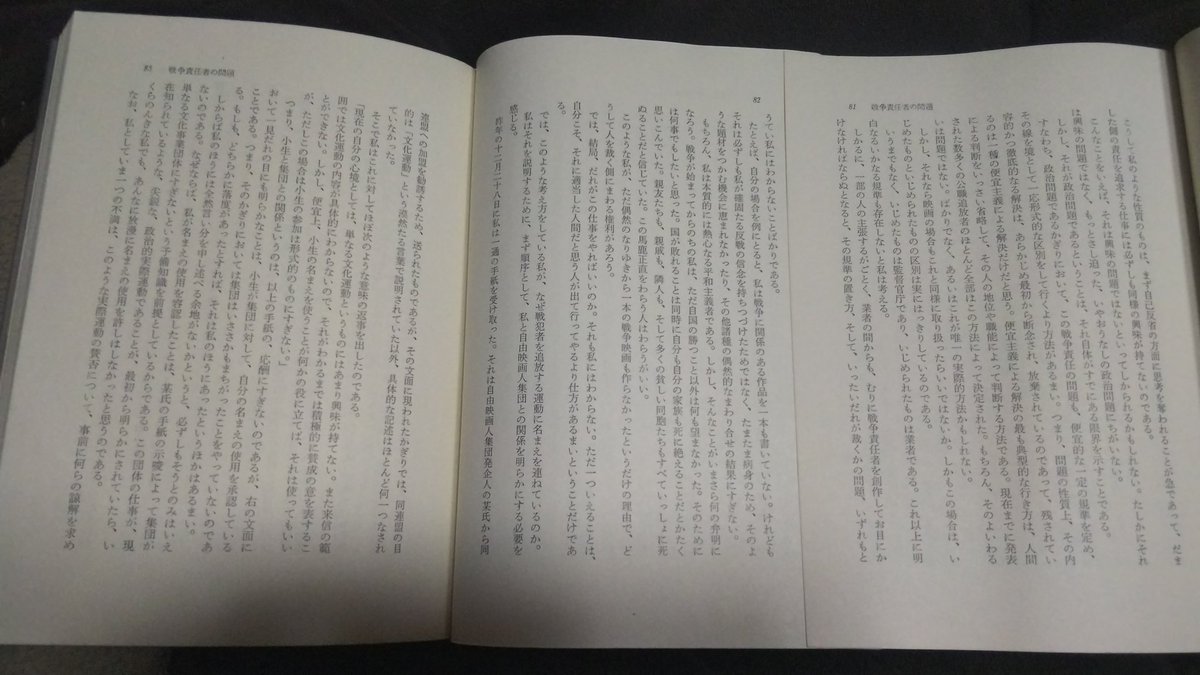 81 戦争責任者の問題
こうして私のような性質のものは、まず自己反省の方面に思考を奪われることが急であって、だま
した側の責任を追求する仕事には必ずしも同様の興味が持てないのである。
こんなことをいえば、それは興味の問題ではないといってしかられるかもしれない。たしかにそれ
は興味の問題ではなく、もっとさし迫った、いやおうなしの政治問題にちがいない。
しかし、それが政治問題であるということは、それ自体がすでにある限界を示すことである。
すなわち、政治問題であるかぎりにおいて、この戦争責任の問題も、便宜的な一定の規準を定め、
その線を境として一応形式的な区別をして行くより方法があるまい。つまり、問題の性質上、その内
容的かつ徹底的なる解決は、あらかじめ最初から断念され、放棄されているのであって、残されてい
るのは一種の便宜主義による解決だけだと思う。便宜主義による解決の最も典型的な行き方は、人間
による判断を一切省略して、その人の地位や職能によって判断する方法である。現在までに発表
された数多くの公職追放者のほとんど全部はこの方法によって決定された。もちろん、そのよいわる
いは問題ではない。ばかりでなく、あるいはこれが唯一の実際的方法かもしれない。
しかし、それなら映画の場合もこれと同様に取り扱ったらいいではないか。しかもこの場合は、い
じめたものといじめられたものの区別は実にはっきりしているのである。
いうまでもなく、いじめたものは監督官庁であり、いじめられたものは業者である。これ以上に明
白なるいかなる規準も存在しないと私は考える。
しかるに、一部の人の主張するがごとく、業者の間からも、むりに戦争責任者を創作してお目にか
けなければならぬとなると、その規準の置き方、そして、いったいだれが裁くかの問題、いずれもと
82
うてい私にはわからないことばかりである。
たとえば、自分の場合を例にとると、私は戦争に関係のある作品を一本も書いていない。けれども
それは必ずしも私が確固たる反戦の信念を持ちつづけたためではなく、たまたま病身のため、そのよ
うな題材をつかむ機会に恵まれなかったり、その他諸種の偶然的なまわり合せの結果にすぎない。
もちろん、私は本質的には熱心なる平和主義者である。しかし、そんなことがいまさら何の弁明に
なろう。戦争が始まってからのちの私は、ただ自国の勝つこと以外は何も望まなかった。そのために
は何事でもしたいと思った。国が敗れることは同時に自分も自分の家族も死に絶えることだとかたく
思いこんでいた。親友たちも、親戚も、隣人も、そして多くの貧しい同胞たちもすべていっしょに死
ぬることだと信じていた。この馬鹿正直をわらう人はわらうがいい。
このような私が、ただ偶然のなりゆきから一本の戦争映画も作らなかったというだけの理由で、ど
うして人を裁く側にまわる権利があろう。
では、結局、だれがこの仕事をやればいいのか。それも私にはわからない。ただ一ついえることは、
自分こそ、それに適当した人間だと思う人が出て行ってやるより仕方があるまいということだけであ
る。
では、このような考え方をしている私が、なぜ戦犯者を追放する運動に名まえを連ねているのか。
私はそれを説明するために、まず順序として、私と自由映画人集団との関係を明らかにする必要を
感じる。
昨年の十二月二十八日に私は一通の手紙を受け取った。それは自由映画人集団発企人の某氏から同
83 戦争責任者の問題
連盟への加盟を勧誘するため、送られたものであるが、その文面に現われたかぎりでは、同連盟の目
的は「文化運動」という漠然たる言葉で説明されていた以外、具体的な記述はほとんど何一つなされ
ていなかった。
そこで私はこれに対してほぼ次のような意味の返事を出したのである。
「現在の自分の心境としては、単なる文化運動というものにはあまり興味が持てない。また来信の範
囲では文化運動の内容が具体的にわからないので、それがわかるまでは積極的に賛成の意を表するこ
とができない。しかし、便宜上、小生の名まえを使うことが何かの役に立てば、それは使ってもいい
が、ただしこの場合は小生の参加は形式的のものにすぎない。」
つまり、小生と集団との関係というのは、以上の手紙の、応酬にすぎないのであるが、右の文面に
おいて一見だれの目にも明らかなことは、小生が集団に対して、自分の名まえの使用を承認している
ことである。つまり、そのかぎりにおいては集団はいささかもまちがったことをやっていないのであ
る。もしも、どちらかに落度があったとすれば、それは私のほうにあったというほかはあるまい。
しからば私のほうには全然言い分を申し述べる余地がないかというと、必ずしもそうとのみはいえ
ないのである。なぜならば、私が名まえの使用を容認したことは、某氏の手紙の示唆によって集団が
単なる文化事業団体にすぎないという予備知識を前提としているからである。この団体の仕事が、現
在知られているような、尖鋭な、政治的実際運動であることが、最初から明らかにされていたら、い
くらのんきな私でも、あんなに放漫に名まえの使用を許しはしなかったと思うのである。
なお、私としていま一つの不満は、このような実際運動の賛否について、事前に何らの諒解を求め